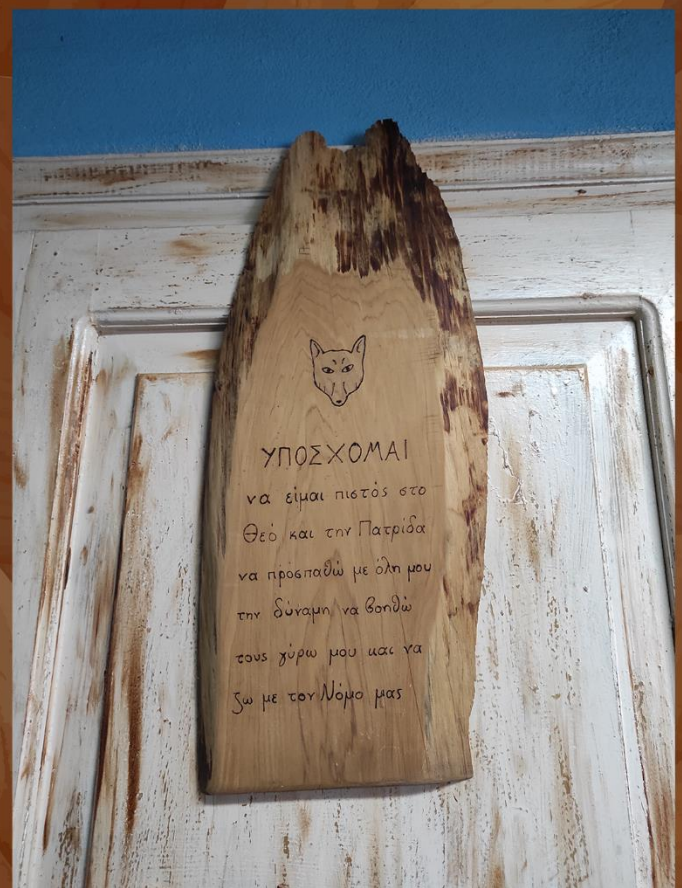 ΥΠΟΣΧΟΜΑΙ
να είμαι πιστός στο
Θεό και την Πατρίδα
να προσπαθώ με όλη μου
την δύναμη να βοηθώ
τους γύρω μου και να
ζω με τον Νόμο μας